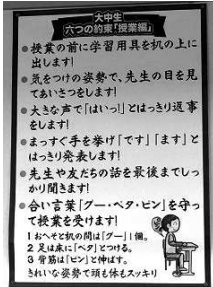 大中生
六つの約束「授業編」
●授業の前に学習用具を机の上に
出します!
●気をつけの姿勢で、先生の目を見
てあいさつをします!
●大きな声で「はいっ!」とはっきり返事
をします!
●まっすぐ手を挙げ「です」「ます」と
はっきり発表します!
●先生や友だちの話を最後までしっ
かり聞きます!
●合い言葉「グー・ペタ・ピン」を守っ
て授業を受けます!
1 おへそと机の間は「グー」1個。
2 足は床に「ペタ」とつける。
3 背筋は「ピン」と伸ばす。
きれいな姿勢で頭も体もスッキリ